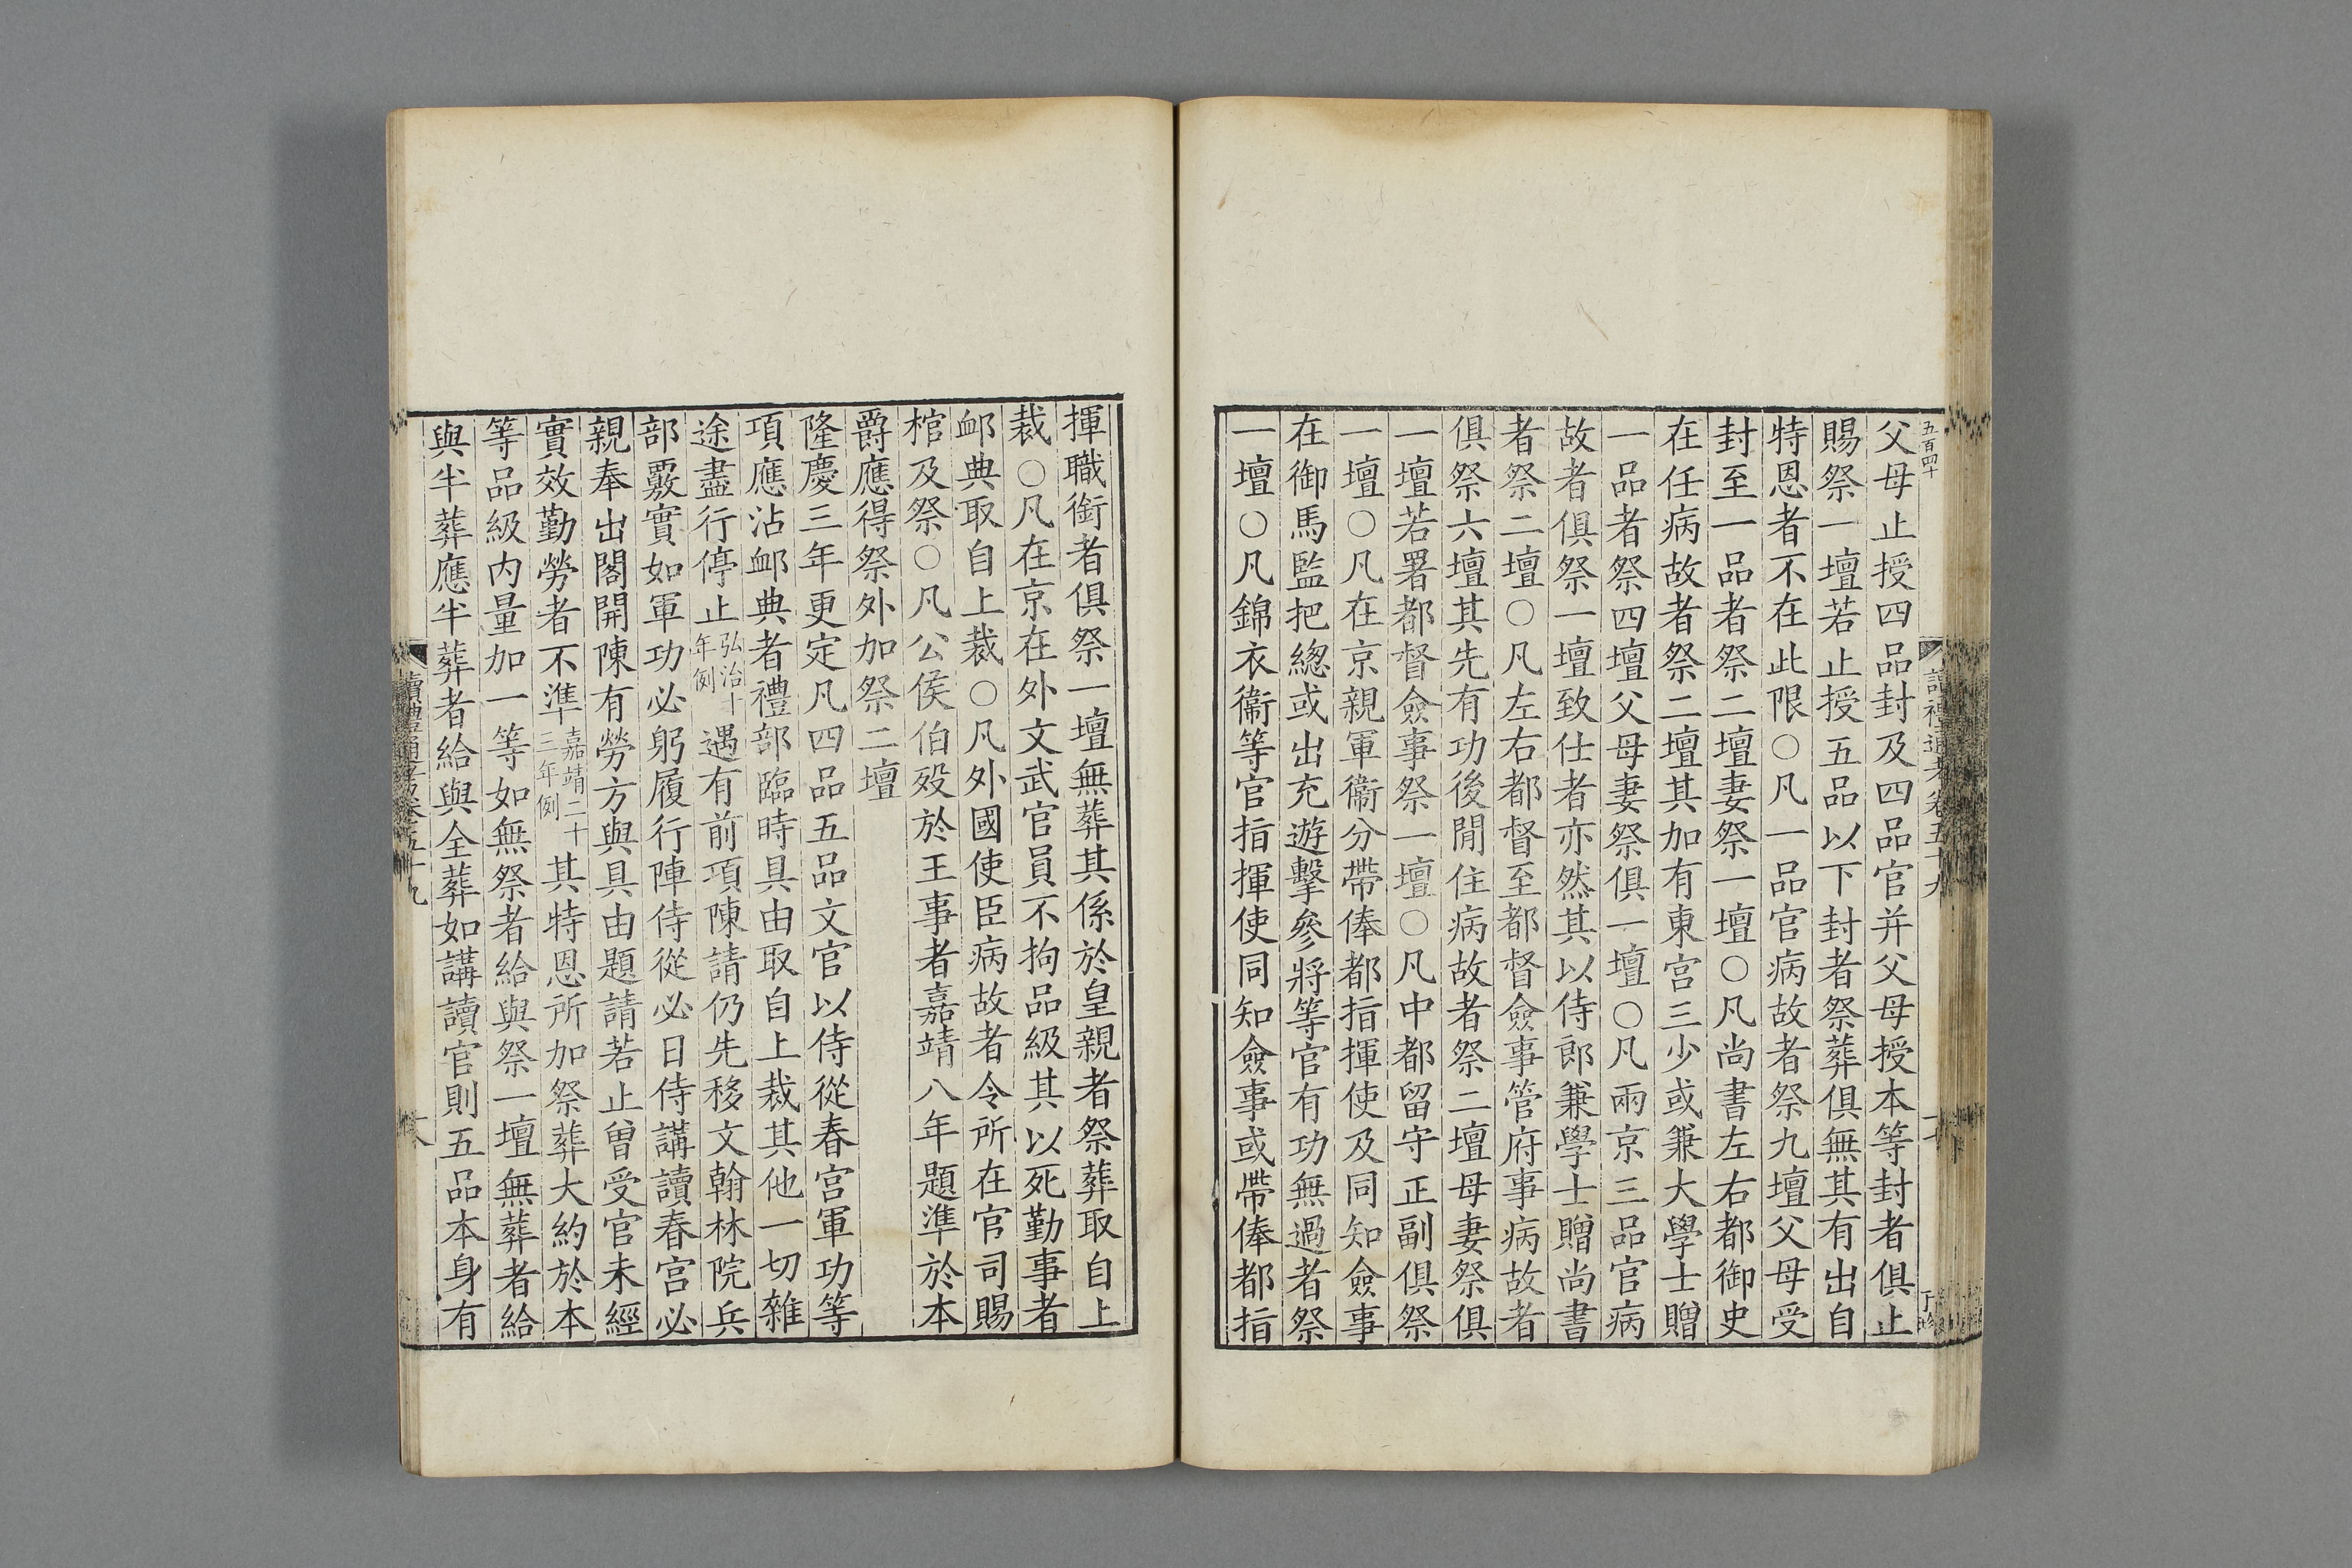 五百四十
讀禮通考卷五十九
父母止授四品封及四品官并父母授本等封者俱止
賜祭一壇若止授五品以下封者祭葬俱無其有出自
特恩者不在此限○凡一品官病故者祭九壇父母受
封至一品者祭二壇妻祭一壇○凡尚書左右都御史
在任病故者祭二壇其加有東宮三少或兼大學士贈
一品者祭四壇父母妻祭俱一壇○凡兩京三品官病
故者俱祭一壇致仕者亦然其以侍郎兼學士贈尚書
者祭二壇○凡左右都督至都督僉事管府事病故者
俱祭六壇其先有功後閒住病故者祭二壇母妻祭俱
一壇若署都督僉事祭一壇○凡中都留守正副俱祭
一壇○凡在京親軍衞分帶俸都指揮使及同知僉事
在御馬監把總或出充遊擊參將等官有功無過者祭
一壇○凡錦衣衞等官指揮使同知僉事或帶俸都指
揮職銜者俱祭一壇無葬其係於皇親者祭葬取自上
裁○凡在京在外文武官員不拘品級其以死勤事者
卹典取自上裁○凡外國使臣病故者令所在官司賜
棺及祭○凡公侯伯歿於王事者嘉靖八年題準於本
爵應得祭外加祭二壇
隆慶三年更定凡四品五品文官以侍從春宮軍功等
項應沾卹典者禮部臨時具由取自上裁其他一切雜
途盡行停止弘治十年例遇有前項陳請仍先移文翰林院兵
部覈實如軍功必躬履行陣侍從必日侍講讀春宮必
親奉出閣開陳有勞方與具由題請若止曾受官未經
實效勤勞者不準嘉靖二十三年例其特恩所加祭葬大約於本
等品級內量加一等如無祭者給與祭一壇無葬者給
與半葬應半葬者給與全葬如講讀官則五品本身有
讀禮通考卷五十九